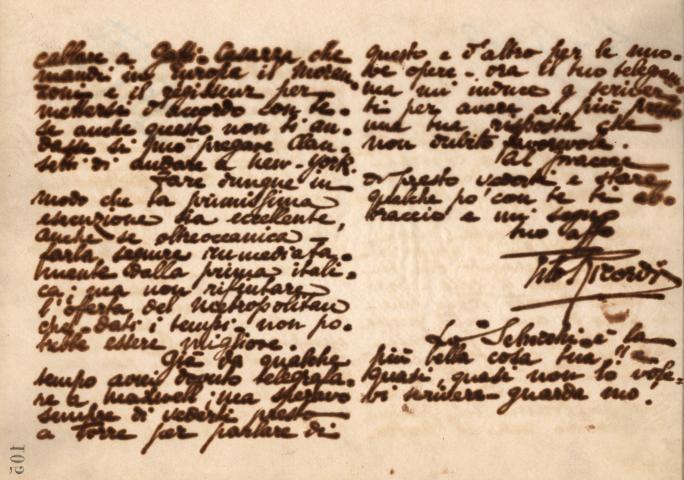 callare a Gatti-Casazza che
mandi in Europa il Moran-
zoni e il régisseur per
mettersi d'accordo con te.
Se anche questo non ti an-
dasse si può pregare Clau-
setti di andare a New-York.
Fare dunque in
modo che la primissima
esecuzione sia eccellente,
anche se oltreoceanica -
farla seguire immediata-
mente dalla prima itali-
ca: ma non rifiutare
l'offerta del Metropolitan
che, dati i tempi, non po-
trebbe essere migliore.
Già da qualche
tempo avrei dovuto telegrafa-
re a Maxwell, ma speravo
sempre di vederti presto
a Torre per parlare di
questo e d'altro per le nuo-
ve opere - ora il tuo telegram-
ma mi induce a scriver-
ti per avere al più presto
una tua risposta che
non dubito favorevole.
Al piacere
di presto vederti e stare
qualche po' con te ti ab-
braccio e mi segno
tuo aff
Tito Ricordi
Lo Schicchi è la
più bella cosa tua!!
Quasi, quasi non lo vole-
vi scrivere - guarda mo.
105